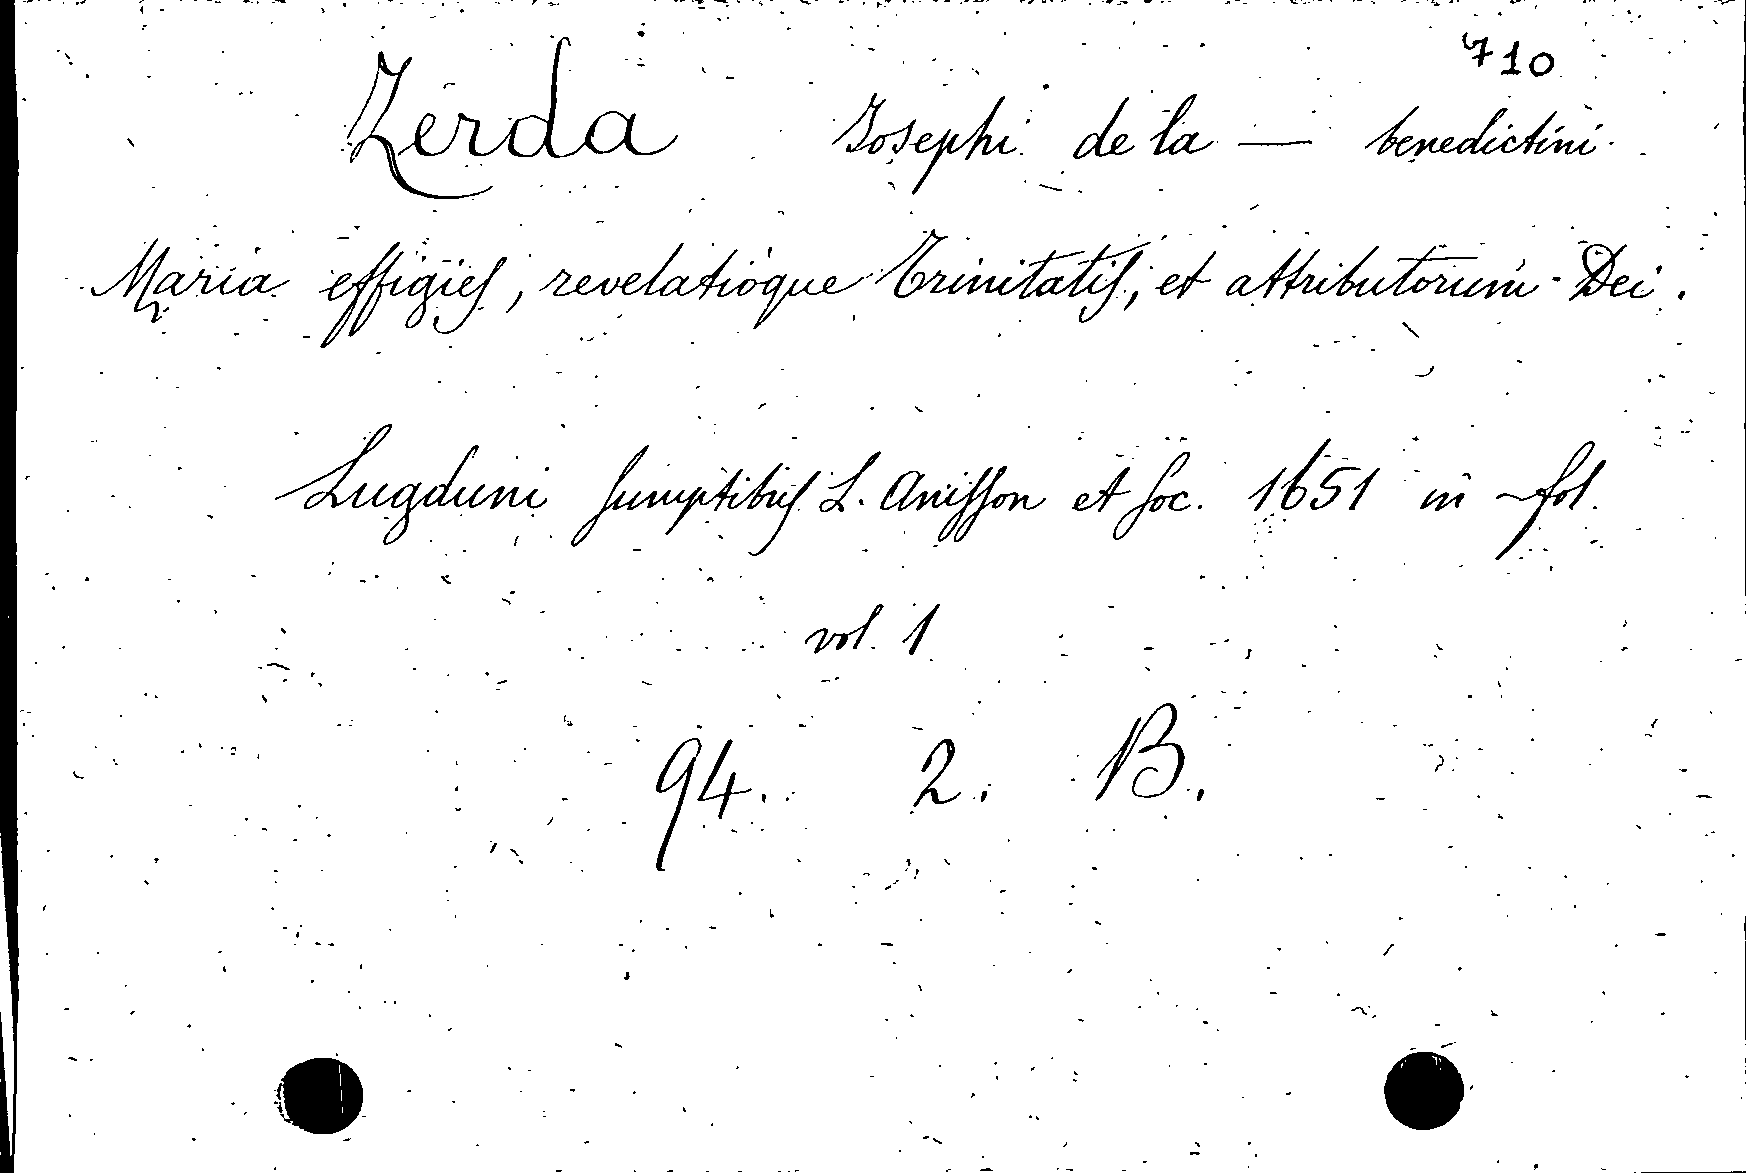 710
Zerda Josephi de la — benedictini
Maria effigies, revelatioque Trinitatis, et attributorum Dei.
Lugduni sumptibus L. Anisson et soc. 1651 in fol.
vol. 1
94. 2. B.